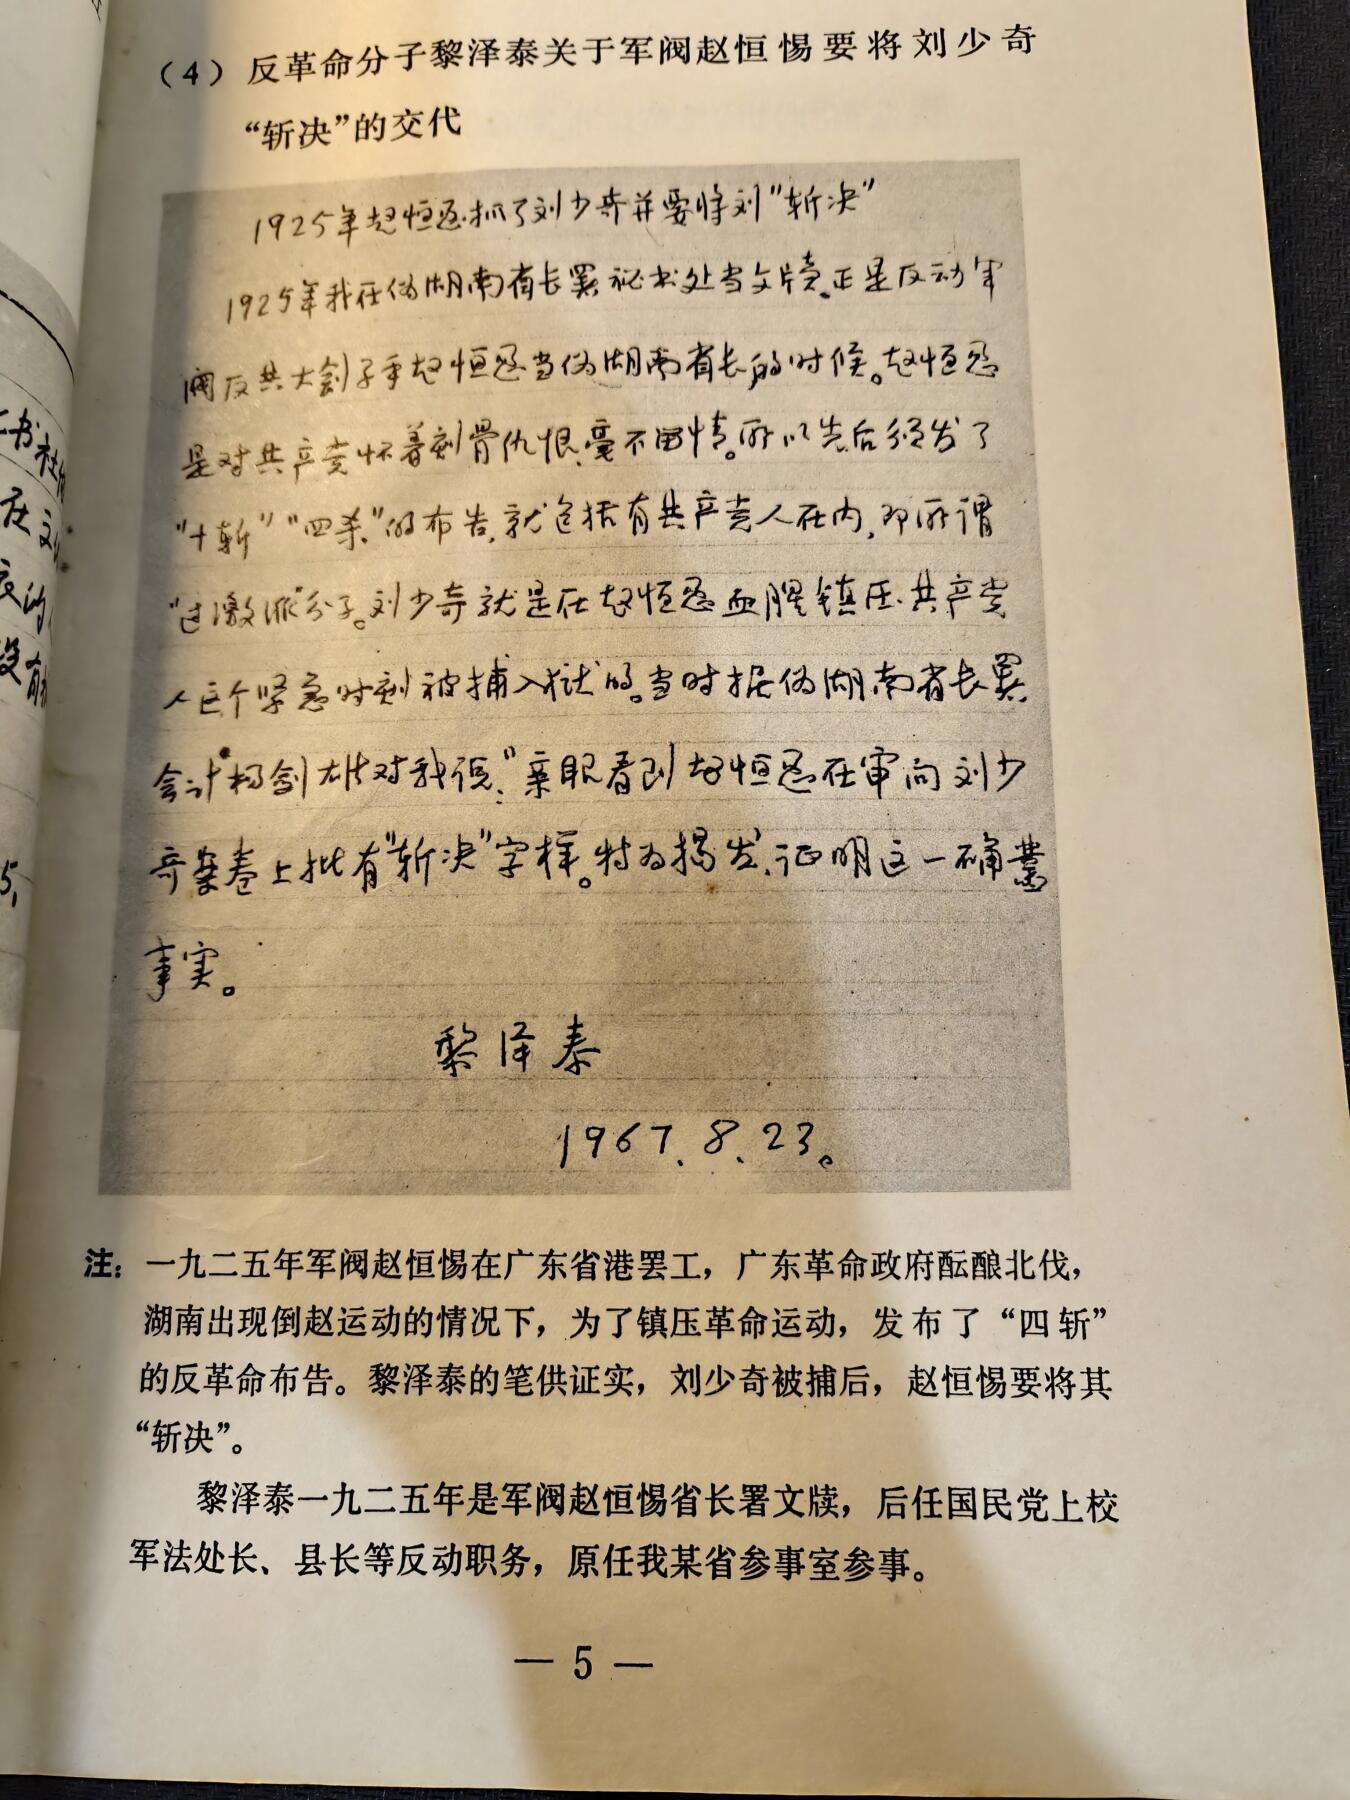 （4）反革命分子黎泽泰关于军阀赵恒惕要将刘少奇
“斩决”的交代
1925年赵恒惕抓了刘少奇并要将刘“斩决”
1925年我在伪湖南省长署秘书处当文牍。正是反动军
阀反共大刽子手赵恒惕当伪湖南省长的时候。赵恒惕
是对共产党怀着刻骨仇恨，毫不留情。所以先后颁发了
“十斩”“四杀”的布告，就包括有共产党人在内，即所谓
“过激派”分子。刘少奇就是在赵恒惕血腥镇压共产党
人这个紧急时刻被捕入狱的。当时据伪湖南省长署
会计杨剑雄对我说：“亲眼看到赵恒惕在审问刘少
奇案卷上批有“斩决”字样。特为揭发，证明这一确凿
事实。
黎泽泰
1967.8.23。
注：一九二五年军阀赵恒惕在广东省港罢工，广东革命政府酝酿北伐，
湖南出现倒赵运动的情况下，为了镇压革命运动，发布了“四斩”
的反革命布告。黎泽泰的笔供证实，刘少奇被捕后，赵恒惕要将其
“斩决”。
黎泽泰一九二五年是军阀赵恒惕省长署文牍，后任国民党上校
军法处长、县长等反动职务，原任我某省参事室参事。
— 5 —